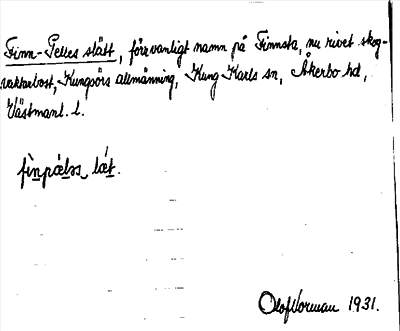 Finn-Pelles slätt, förr vanligt namn på Finnsta, nu rivet skog-
vaktarbost, Kungsörs allmänning, Kung Karls sn, Åkerbo hd,
Västmanl. l.
fìnpæ̀lsəs lǽt.
Olof Norman 1931.